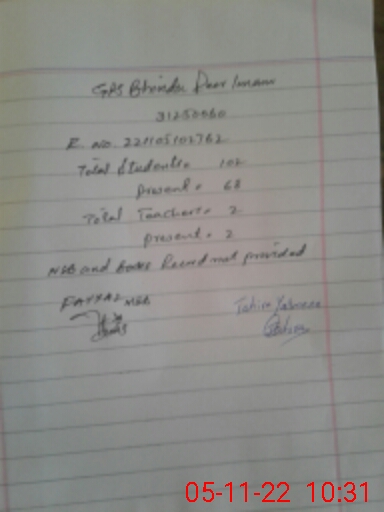 GPS Bhinder Peer Imam
31250060
E. no. 221105102762
Total Students. 102
present. 68
Total Teachers. 2
present. 2
NSB and Books Record not provided
FAYYAZ MEA
Tahira Yasmeen
05-11-22 10:31